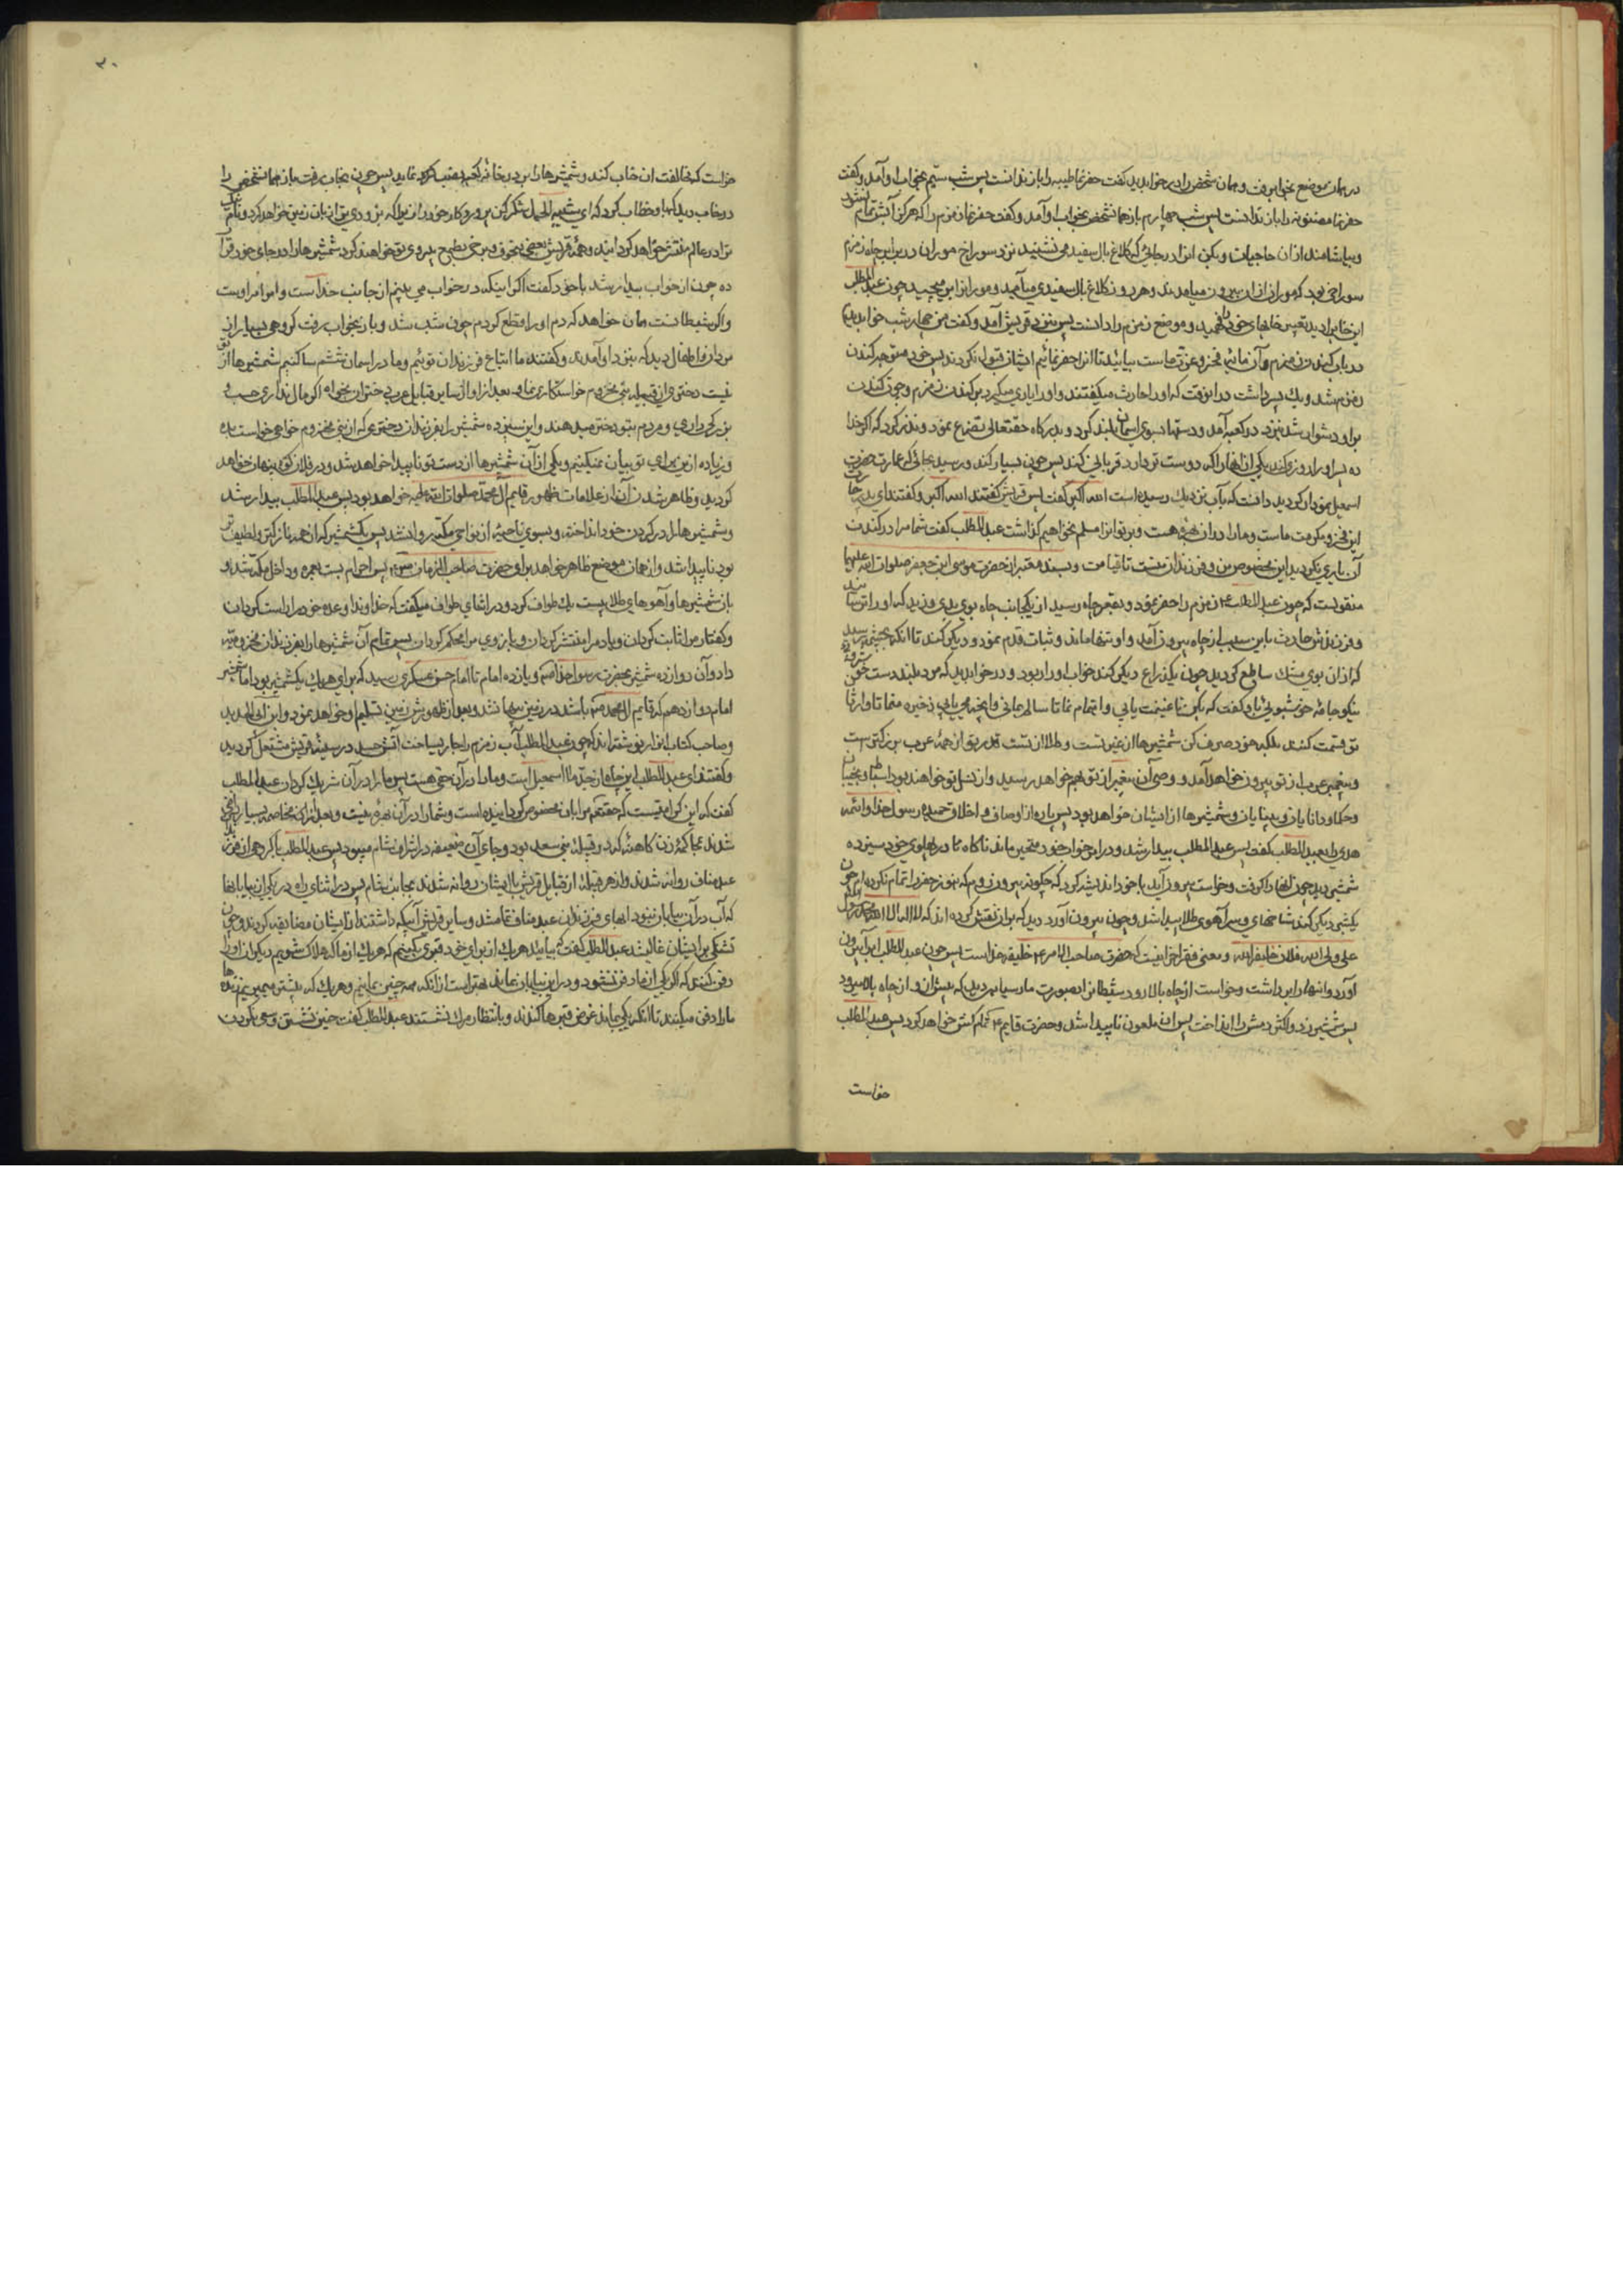 در همان موضع بخوابرفت و همان شخص را در خواب دید که گفت حفر نما طیبه را باز ندانست پس شب سیم بخواب او آمد و گفت
حفر نما مضنونه را باز ندانست پس شب چهارم باز همان شخص بخواب او آمد و گفت حفر نما زمزم را که هرگز آبش تمام نشود
و بیاشامند از آن حاجیان و بکن آنرا در جائی که کلاغ بال سفید می نشیند نزد سوراخ موران و در برابر چاه زمزم
سوراخی بود که موران از آن بیرون میامدند و هر روز کلاغ بال سفیدی میآمد و مورانرا بر میچید چون عبدالمطلب
این خوابرا دید تعبیر خوابهای خود را فهمید و موضع زمزم را دانست پس بنزد قریش آمد و گفت من چهار شب خواب دیدم
در باب کندن زمزم و آن مایه فخر و عزت ماست بیائید تا آنرا حفر نمائیم ایشان قبول نکردند پس خود متوجه کندن
زمزم شد و یک پسر داشت در آنوقت که او را حارث میگفتند و او را یاری میکرد بر کندن زمزم و چون کندن
بر او دشوار شد بنزد در کعبه آمد و دستها بسوی آسمان بلند کرد و بدرگاه حقتعالی تضرع نمود و نذر کرد که اگر خدا
ده پسر او را روزی کند یکی از آنها را که دوست تر دارد قربانی کند پس چون بسیار کند و رسید بجائی که عمارت حضرت
اسمعیل نمودار گردید دانست که بآب نزدیک رسیده است الله اکبر گفت پس قریش گفتند الله اکبر و گفتند ای پدر حارث
این فخر و مکرمت ماست و ما را در آن بهره هست و بر تو آنرا مسلم نخواهیم گذاشت عبدالمطلب گفت شما مرا در کندن
آن یاری نکردید این مخصوص من و فرزندان منست تا قیامت و بسند معتبر از حضرت موسی ابن جعفر صلوات الله علیهما
منقولست که چون عبدالمطلب ع زمزم را حفر نمود و بقعر چاه رسید از یکجانب چاه بوی بدی وزید که او را ترسانید
و فرزندش حارث باین سبب از چاه بیرون آمد و او تنها ماند و ثبات قدم نمود و دیگر کند تا آنکه بچشمه رسید
که از آن بوی مشک ساطع گردید چون یکذراع دیگر کند خواب او را ربود و در خواب دید که مرد بلند دست خوش روی
نیکو جامهٔ خوشبوئی باو گفت که بکن تا غنیمت یابی و اهتمام نما تا سالم مانی و آنچه بیابی ذخیره منما تا وارثان
تو قسمت کنند بلکه خود صرف کن شمشیرها از غیر تست و طلا از تست قدر تو از همهٔ عرب بزرگتر است
و پیغمبر عرب از تو بیرون خواهد آمد و وصی آن پیغمبر از تو بهم خواهد رسید و از نسل تو خواهند بود اسباط و نجیبان
و حکما و دانایان و بینایان و شمشیرها از ایشان خواهد بود پس پاره از اوصاف و اخلاق حمیده رسول خدا و ائمه
هدی را بعبدالمطلب گفت پس عبدالمطلب بیدار شد و در این خواب خود متحیر ماند ناگاه در پهلوی خود سیزده
شمشیر دید چون آنها را گرفت و خواست بیرون آید با خود اندیشه کرد که چگونه بیرون روم که هنوز حفر را تمام نکرده ام چون
یکشبر دیگر کند شاخهای و سر آهوی طلا پیدا شد و چون بیرون آورد دید که بر آن نقش کرده اند که لا اله الا الله محمد رسول الله
علی ولی الله فلان خلیفة الله و معنی فقره آخر اینست که حضرت صاحب الامر ع خلیفه خداست پس چون عبدالمطلب این را بیرون
آورد و آنها را برداشت و خواست از چاه بالا رود شیطانرا بصورت مار سیاهی دید که پیش از او از چاه بالا میرود
پس شمشیر زد و اکثر دمش را انداخت پس آن ملعون ناپیدا شد و حضرت قایم ع تمام کش خواهد کرد پس عبدالمطلب
خواست
۳۰
خواست که مخالفت آن خواب کند و شمشیرها را بر در خانه کعبه نصب کرده نماید پس چون بخواب رفت باز همان شخص را
در خواب دید که باو خطاب کرد که ای شیبة الحمد شکر کن پروردگار خود را زیرا که بزودی ترا زبان زمین خواهد کرد و نام
ترا در عالم منتشر خواهد گردانید و همهٔ قریش بعضی بخوف و برخی بطمع پیروی تو خواهند کرد شمشیرها را در جای خود قرار
ده چون از خواب بیدار شد با خود گفت اگر اینکه در خواب می بینم از جانب خداست و امر امر اوست
و اگر شیطانست همان خواهد که دم او را قطع کردم چون شب شد و باز بخواب رفت گروهی بسیار از
مردان و اطفال دید که بنزد او آمدند و گفتند ما اتباع فرزندان توئیم و ما در اسمان ششم ساکنیم شمشیرها از تو
نیست دختری از قبیله بنی مخزوم خواستگاری نما و بعد از او از سایر قبایل عرب دختران بخواه اگر مال نداری حسب
بزرگی داری و مردم بتو دختر میدهند و این سیزده شمشیر را بفرزندان دختری که از بنی مخزوم خواهی خواست بده
و زیاده از این برای تو بیان نمیکنیم و یکی از آن شمشیرها از دست تو ناپیدا خواهد شد و در فلان کوه پنهان خواهد
گردید و ظاهر شدن آن از علامات ظهور قایم آل محمد صلوات الله علیه خواهد بود پس عبدالمطلب بیدار شد
و شمشیرها را در گردن خود انداخته و بسوی ناحیهٔ از نواحی مکه روانه شد پس یکشمشیر که از همه نازکتر و لطیف تر
بود ناپیدا شد و از همان موضع ظاهر خواهد برای حضرت صاحب الزمان پس احرام بست بعمره و داخل مکه شد و
با شمشیرها و آهوهای طلا بیست یک طواف کرد و در اثنای طواف میگفت که خداوندا وعده خود را راست گردان
و گفتار مرا ثابت گردان و یاد مرا منتشر گردان و بازوی مرا محکم گردان پس تمام آن شمشیرها را بفرزندان مخزومیه
داد و آن دوازده شمشیر بحضرت رسول خدا ص و یازده امام تا امام حسن عسکری رسید که برای هر یک یکشمشیر بود اما شمشیر
امام دوازدهم که قایم آل محمد ص باشد در زمین پنهان شد و بعد از ظهورش زمین تسلیم او خواهد نمود
و صاحب کتاب انوار نوشته اند که چون عبدالمطلب آب زمزم را جاری ساخت آتش حسد در سینهٔ قریش مشتعل گردید
و گفتند ای عبدالمطلب این چاه از جد ما اسمعیل است و ما را در آن حقی هست پس ما را در آن شریک گردان عبدالمطلب
گفت که این کرامتیست که حقتعالی مرا بآن مخصوص گردانیده است و شما را در آن بهره نیست و بعد از آنکه مخاصمه بسیار راضی
شدند بمحاکمهٔ زن کاهنهٔ که در قبیلهٔ بنی سعد بود و جای آن ضعیفه در اشراف شام میبود پس عبدالمطلب با گروهی از فرزندان
عبد مناف روانه شدند و از هر قبیلهٔ از قبایل قریش با ایشان روانه شدند بجانب شام پس در اثنای راه در یکی از بیابانها
که آب در آن بیابان نبود آبهای فرزندان عبد مناف تمام شد و سایر قریش آبیکه داشتند از ایشان مضایقه کردند و چون
تشنگی بر ایشان غالب شد عبدالمطلب گفت که بیائید هر یک از برای خود قبری بکنیم که هر یک از ما که هلاک شویم دیگران او را
دفن کنند که اگر یکی از ما دفن نشود و در این بیابان بماند بهتر است از آنکه همه چنین بمانیم و هر یک که پیشتر بمیریم زنده ها
ما را دفن میکنند تا آنکه یکی بماند غرض قبرها کندند و بانتظار مرگ نشستند عبدالمطلب گفت چنین نشستن و سعی نکردن